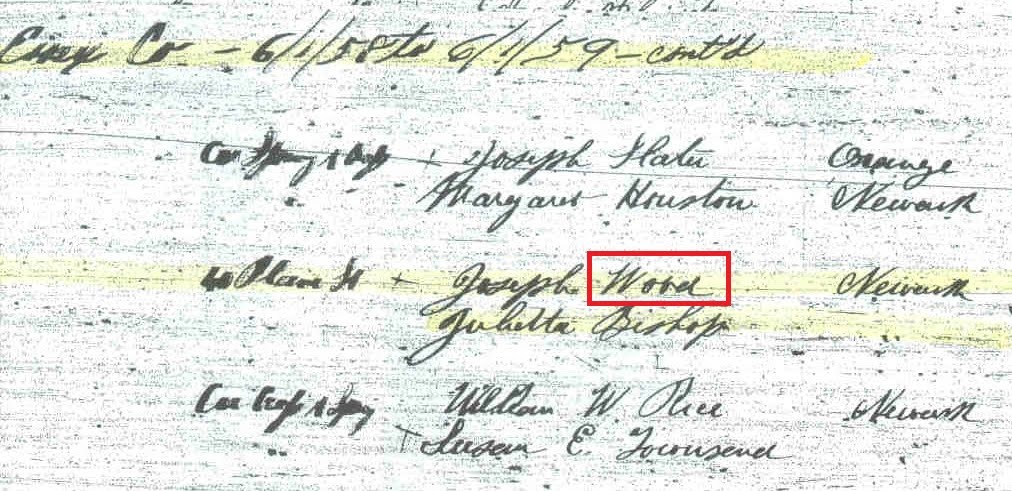 Essex Co - 6/1/58 to 6/1/59 - cont'd
Joseph Slater Orange
Margaret Houston Newark
Plane St + Joseph Wood Newark
Julietta Bishop
William W Rice Newark
Susan E. Townsend